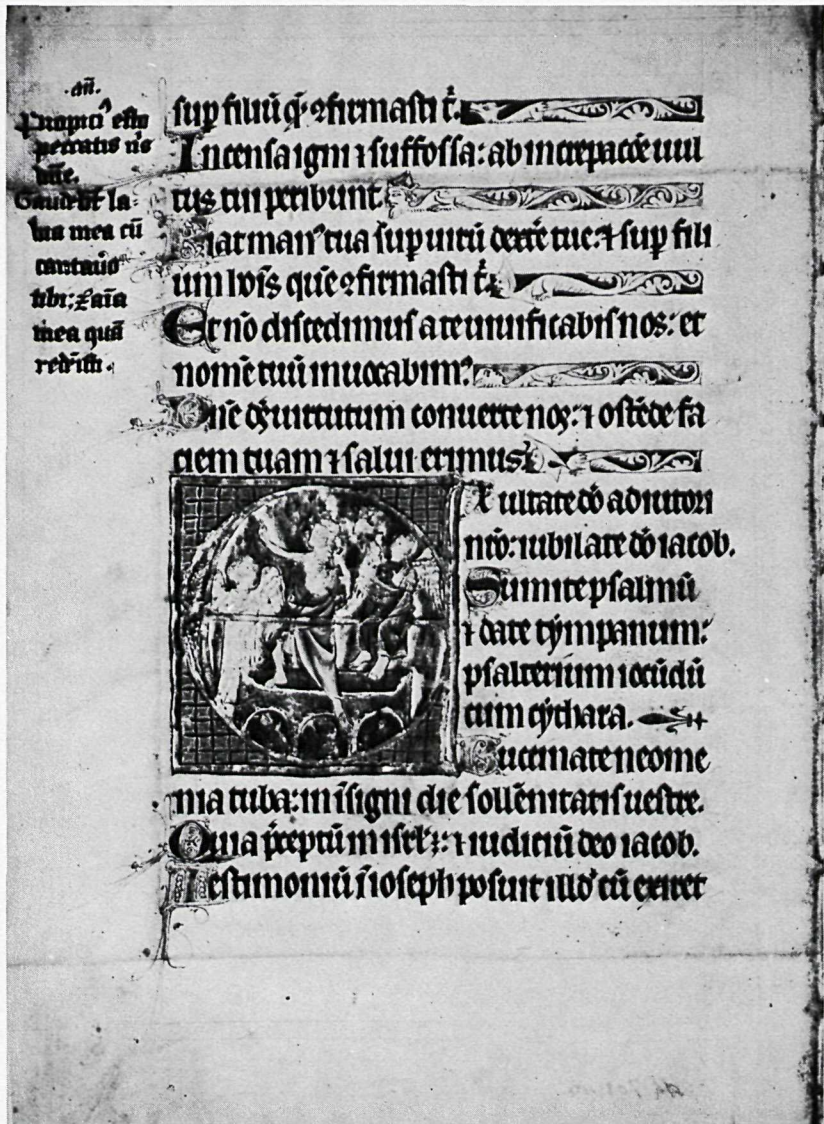 .añ.
Propici᷒ esto
peccatis nr̄is
dñe.
Gaudebt̄ la-
bia mea cū
cantauo᷒
tibi: ⁊ aīa
mea quā
redem̄isti.
sup filiū q̄ ꝯfirmasti t᷒.
Incensa igni ⁊ suffossa: ab increpacōe uul
tus tui peribunt.
Fiat man᷒ tua sup uirū dextre᷒ tue: ⁊ sup fili
um hoīs quē ꝯfirmasti t᷒.
Et nō discedimus a te uiuificabis nos: et
nomē tuū inuocabim᷒.
Dñe ds̄ uirtutum conuerte nos: ⁊ ostēde fa
ciem tuam ⁊ salui erimus.
Exultate dō adiutori
nr̄o: iubilate dō iacob.
Sumite psalmū
⁊ date tympanum:
psalterium iocūdū
cum cythara.
Buccinate neome
nia tuba: in īsigni die sollēnitatis uestre.
Quia p̄ceptū in isrl̄ ē: ⁊ iudiciū deo iacob.
Testimoniū ī ioseph posuit illd᷒ cū exiret